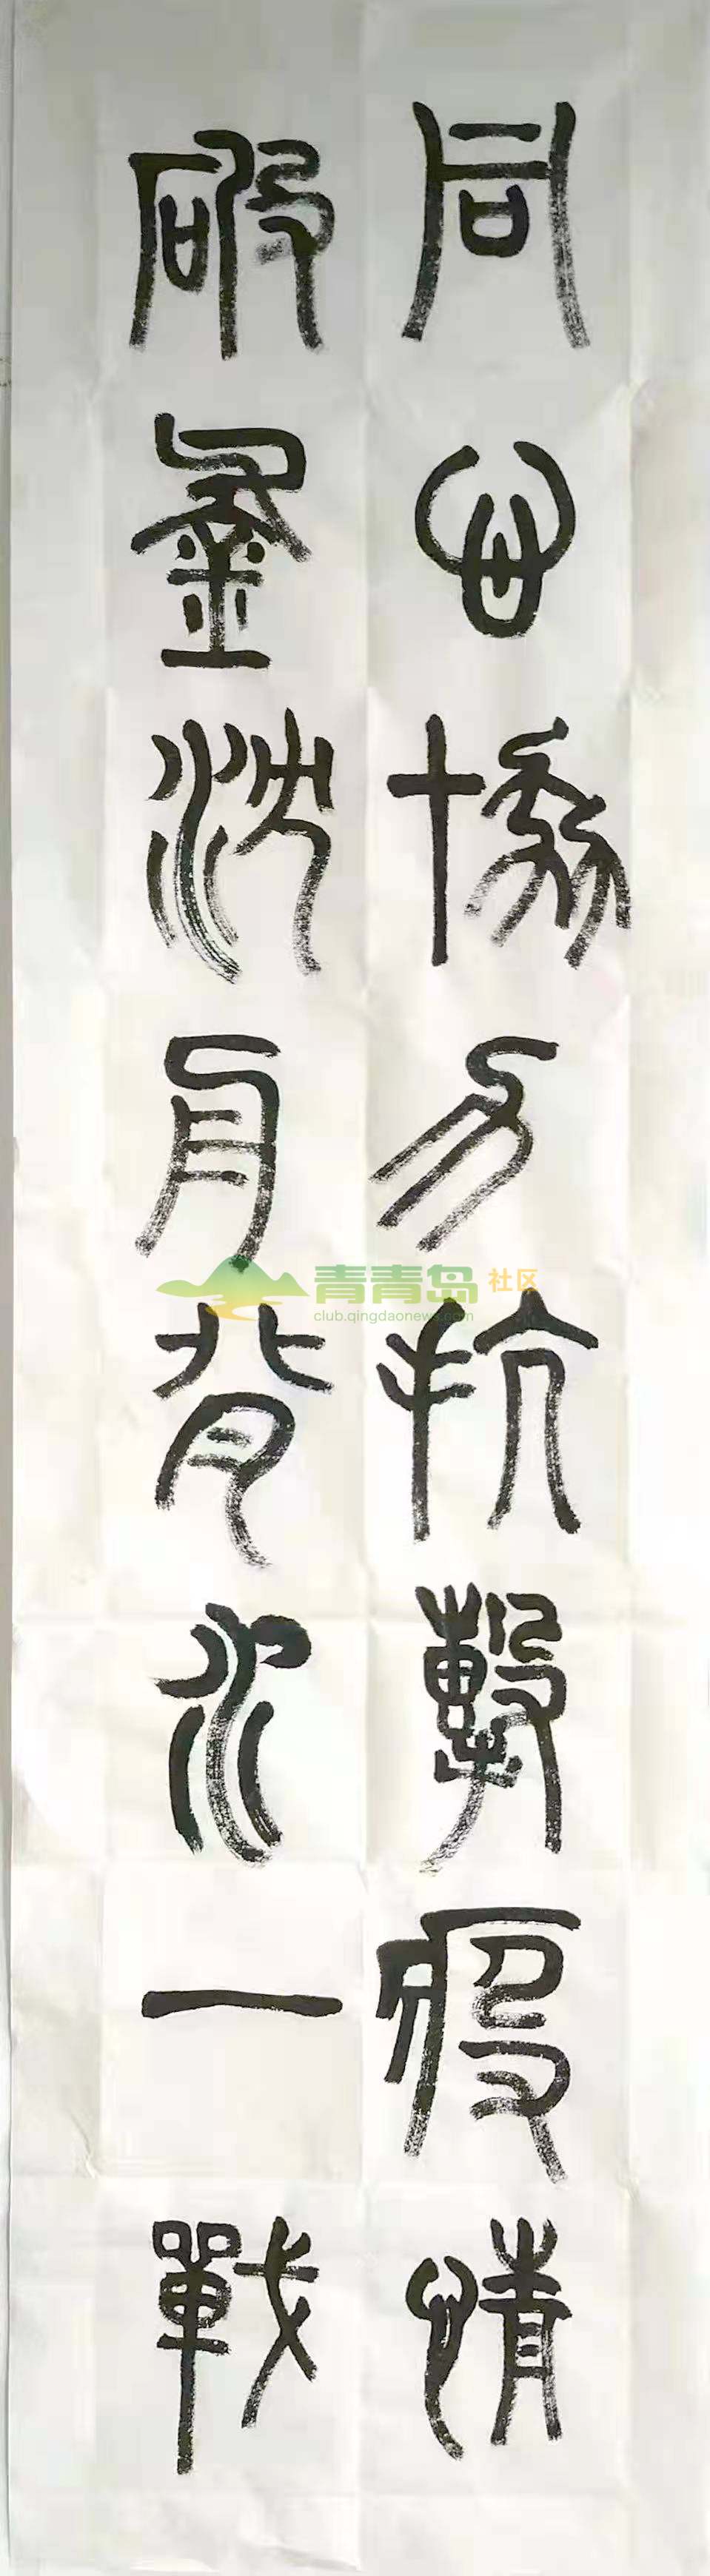 同心協力抗擊疫情
破釜沈舟背水一戰
青青岛社区
club.qingdaonews.com